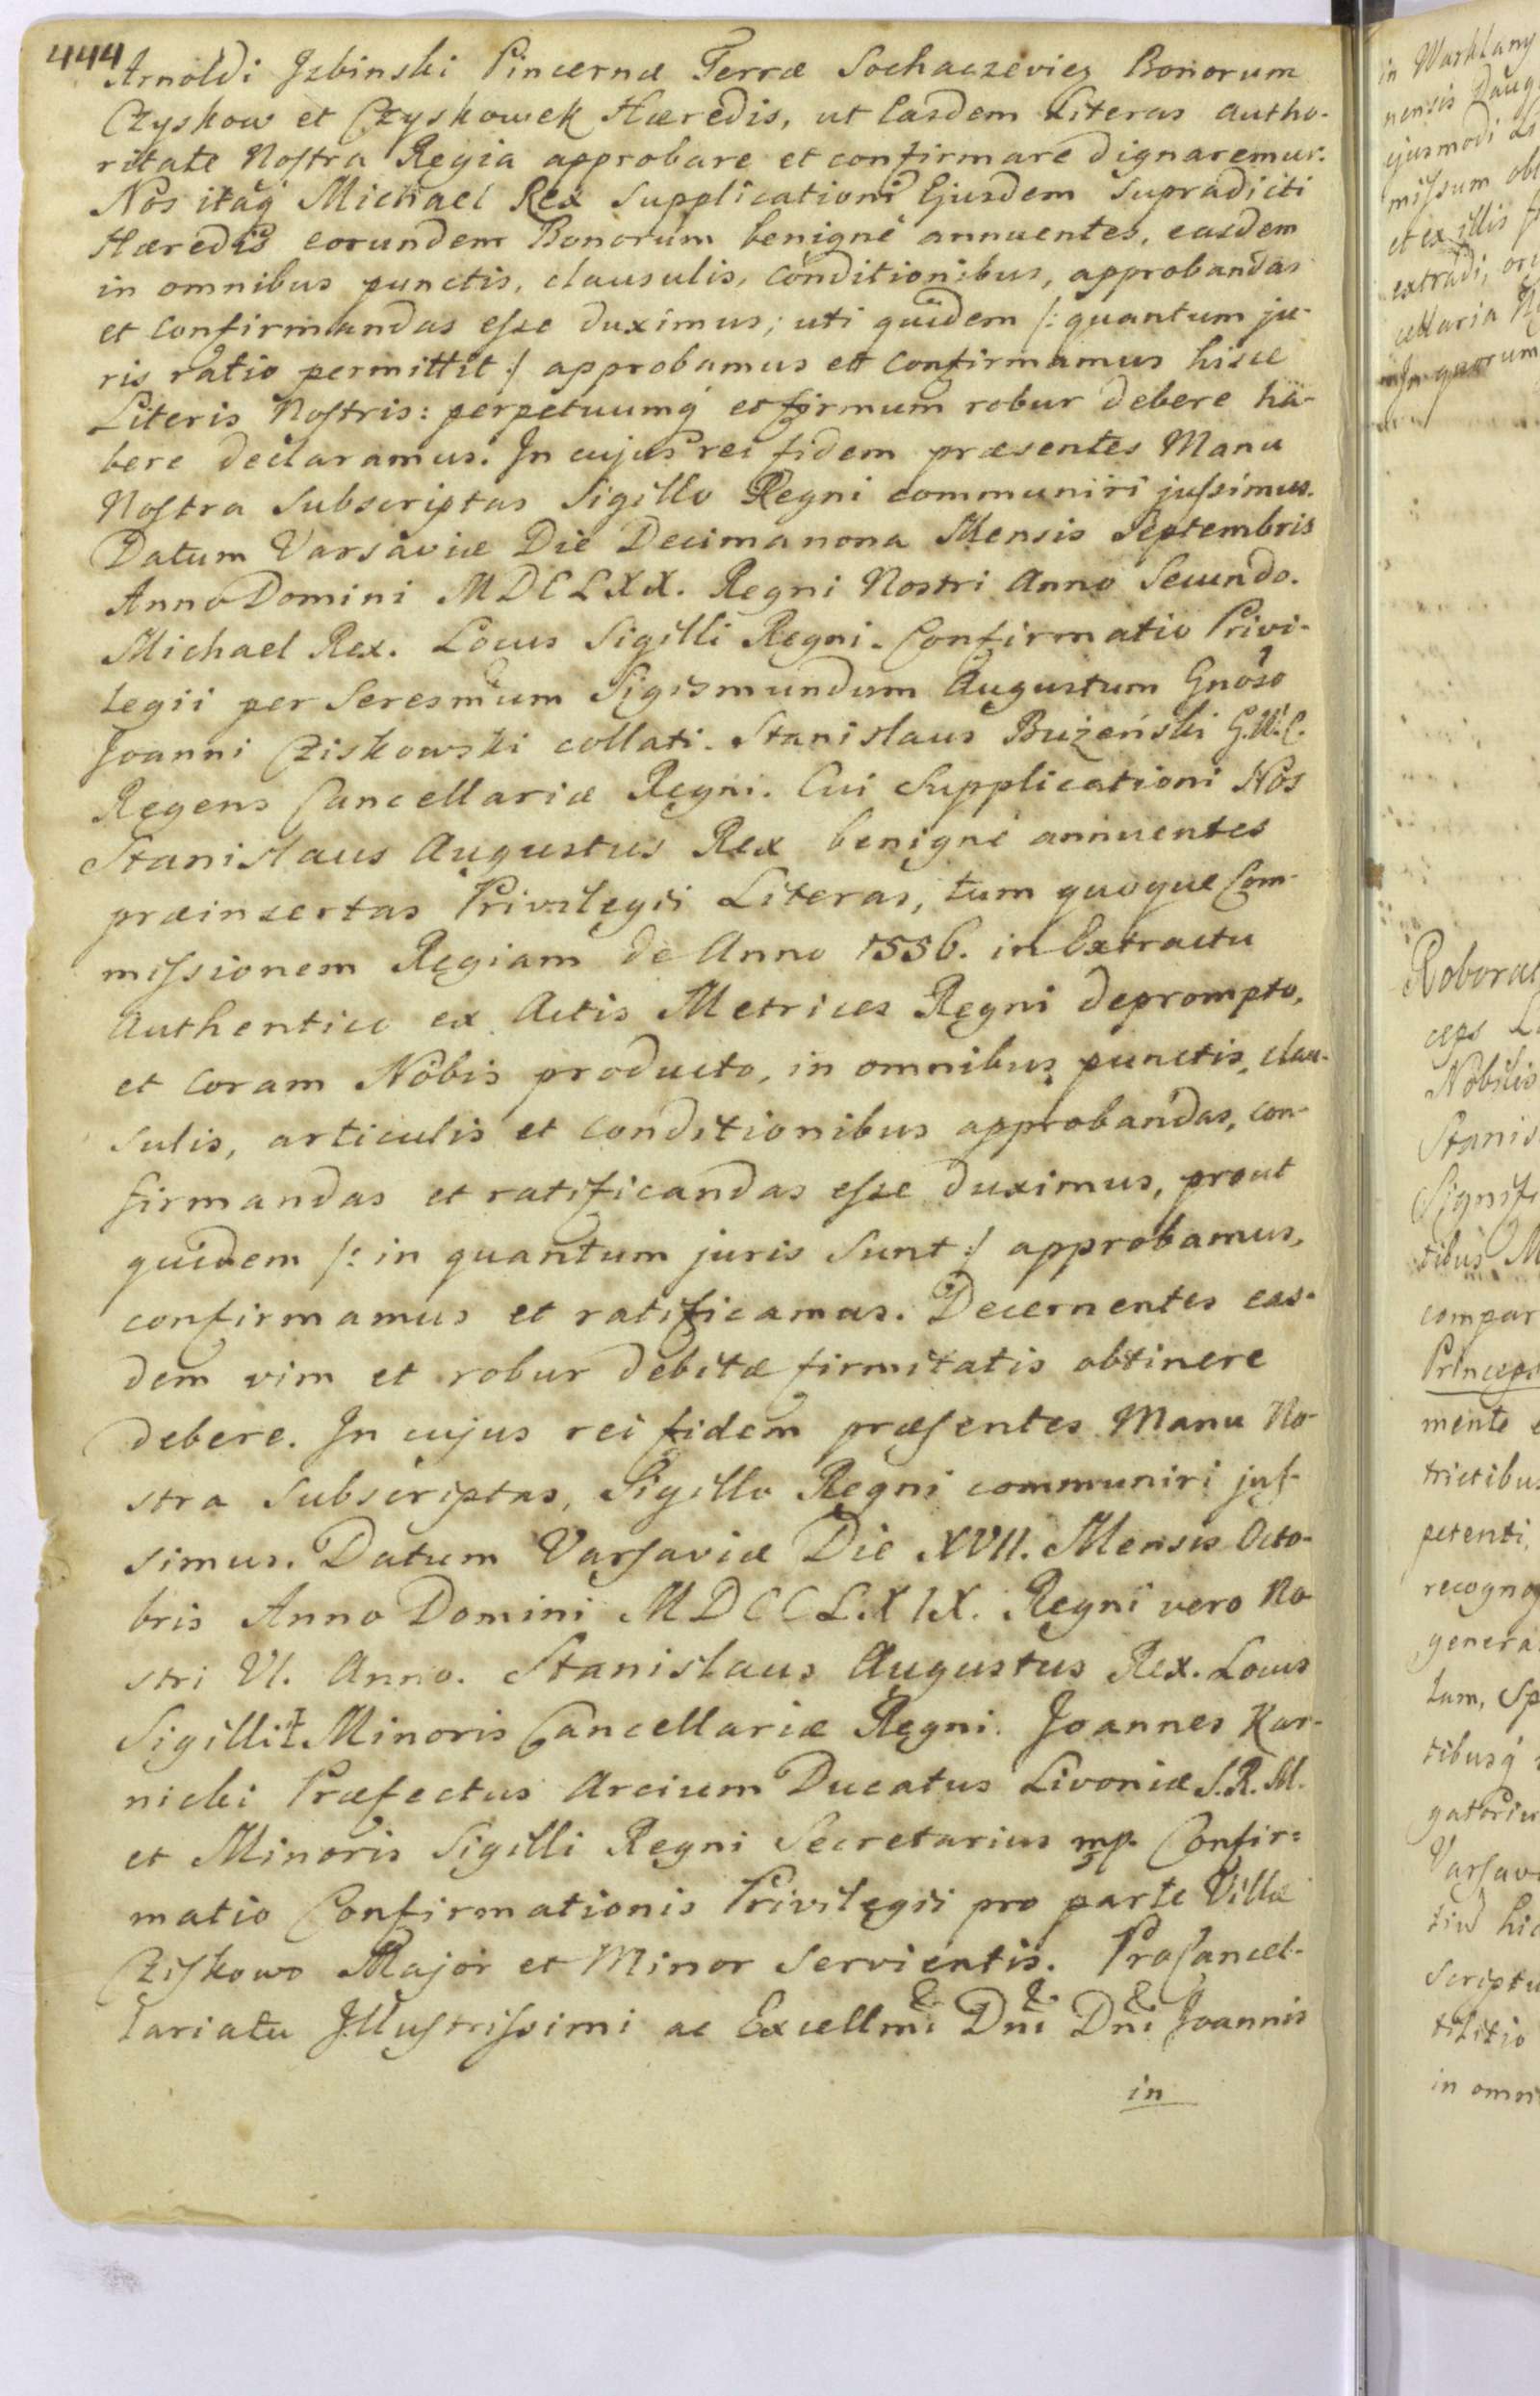 444
Arnoldi Jzbinski Pincernæ Terræ Sochaczeviez Bonorum
Czyskow et Czyskowek Hæredis, ut Easdem Literas autho-
ritate Noſtra Regia approbare et confirmare dignaremur.
Nos itaq́ Michael Rex Supplicationi Ejusdem Supradicti
Hæredis eorundem Bonorum benignè annuentes, easdem
in omnibus punctis, clausulis, Conditionibus, approbandas
et Confirmandas eſse duximus; uti quidem /: quantum ju-
ris ratio permittit :/ approbamus et Confirmamus hisce
Literis Noſtris: perpetuumq́ et firmum robur debere ha-
bere declaramus. Jn cujus rei fidem præsentes Manu
Noſtra Subscriptas Sigillo Regni communiri juſsimus.
Datum Varsaviæ Die Decimanona Mensis Septembris
Anno Domini MDCLXX. Regni Nostri Anno Secundo.
Michael Rex. Locus Sigilli Regni. Confirmatio Privi-
legii per Seresmũm Sigismundum Augustum Gnõso
Joanni Cziskowski collati. Stanislaus Bużeński G.W.C.
Regens Cancellariæ Regni. Cui Supplicationi Nos
Stanislaus Augustus Rex benignè annuentes
præinsertas Privilegii Literas, tum quoque Com-
miſsionem Regiam de Anno 1556. in Extractu
Authentico ex Actis Metrices Regni deprompto,
et Coram Nobis producto, in omnibus punctis, clau-
sulis, articulis et Conditionibus approbandas, con-
firmandas et ratificandas eſse duximus, prout
quidem /: in quantum juris Sunt :/ approbamus,
confirmamus et ratificamus. Decernentes eas-
dem vim et robur debitæ firmitatis obtinere
debere. Jn cujus rei fidem præſentes Manu No-
stra Subscriptas, Sigillo Regni communiri juſ-
simus. Datum Varſaviæ Die XVII. Mensis Octo-
bris Anno Domini MDCCLXIX. Regni vero No-
stri VI. Anno. Stanislaus Augustus Rex. Locus
Sigilli Minoris Cancellariæ Regni. Joannes Kar-
nicki Præfectus Arcium Ducatus Livoniæ S.R.M.
et Minoris Sigilli Regni Secretarius mp. Confir=
matio Confirmationis Privilegii pro parte Villæ
Cziſkowo Major et Minor Servientis. Procancel-
lariatu Jlluſtriſsimi ac Excellmi Dni Dni Joannis
in
in Marklany
nensis Daug
ejusmodi Li
miſsum obl
et ex illis
extradi, ori
cellaria
Jn quorum
Roborat
ceps
Nobilis
Stanis
Signifi
tibus M
compar
Princeps
mente e
trictibus
petenti,
recogno
genera
tum, Sp
tibusq́
gatoriu
Varſavi
hic
Scriptu
in omn